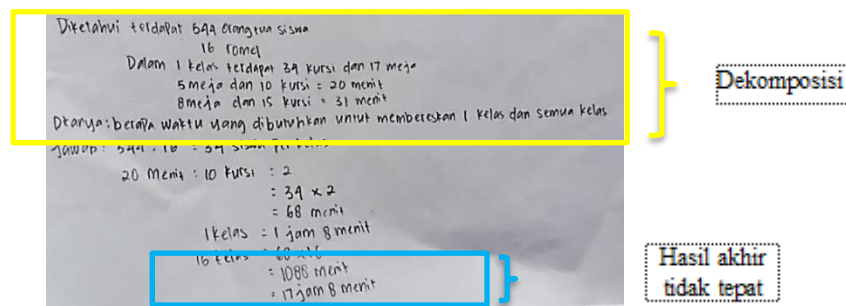 Diketahui terdapat 544 orangtua siswa
16 romel
Dalam 1 kelas terdapat 34 kursi dan 17 meja
5 meja dan 10 kursi = 20 menit
8 meja dan 15 kursi = 31 menit
Dtanya : berapa waktu yang dibutuhkan untuk membereskan 1 kelas dan semua kelas
Jawab : 544 : 16 = 34 siswa Per kelas
20 Menit : 10 kursi : 2
: 34 x 2
= 68 menit
1 kelas = 1 jam 8 menit
16 kelas = 68 x 16
= 1088 menit
= 17 jam 8 menit
Dekomposisi
Hasil akhir
tidak tepat